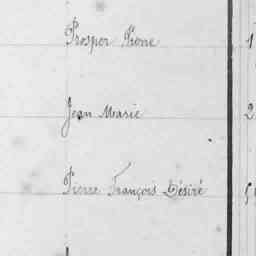 Prosper Pierre 1
Jean Marie 2
Pierre François Désiré